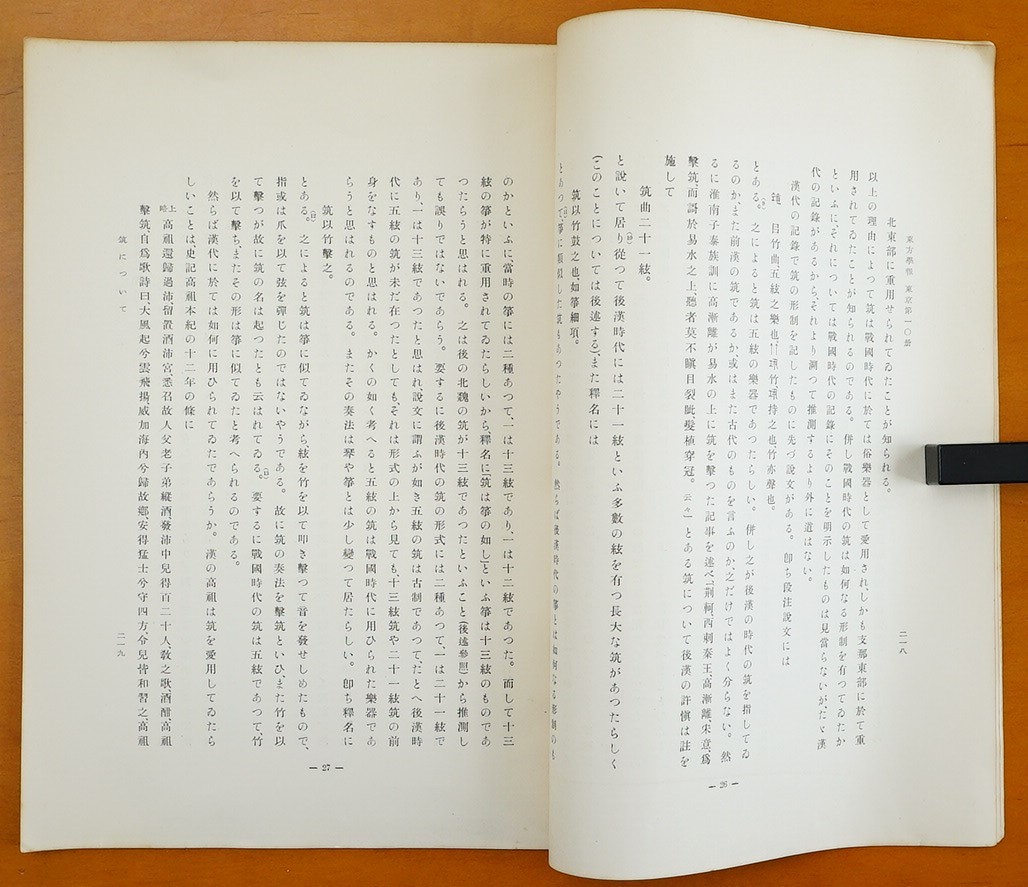 東方學報 東京第一〇册
二一八
北東部に重用せられてゐたことが知られる。
以上の理由によつて筑は戰國時代に於ては俗樂器として愛用されしかも支那東部に於て重
用されてゐたことが知られるのである。併し戰國時代の筑は如何なる形制を有つてゐたか
といふにそれについては戰國時代の記錄にそのことを明示したものは見當らないが、たゞ漢
代の記錄があるから、それより溯つて推測するより外に道はない。
漢代の記錄で筑の形制を記したものに先づ說文がある。卽ち段注說文には
竹曲五絃之樂也、持之也、竹亦聲也。
とある。之によると筑は五絃の樂器であつたらしい。併し之が後漢の時代の筑を指してゐ
るのか、また前漢の筑であるか、或はまた古代のものを言ふのか、之だけではよく分らない。然
るに淮南子泰族訓に高漸離が易水の上に筑を擊つた記事を述べ、「荊軻西刺秦王、高漸離宋意、爲
擊筑、而謌於易水之上、聽者莫不瞋目裂眦、髮植穿冠。云々」とある筑について後漢の許愼は註を
施して
筑曲二十一絃。
と說いて居り、從つて後漢時代には二十一絃といふ多數の絃を有つ長大な筑があつたらしく
(このことについては後述する)、また釋名には
筑以竹鼓之也、如箏細項。
とあつて、箏に類似した筑もあつたやうである。然らば後漢時代の箏とは如何なる形制のも
— 26 —
のかといふに當時の箏には二種あつて、一は十三絃であり、一は十二絃であつた。而して十三
絃の箏が特に重用されてゐたらしいから、釋名に「筑は箏の如し」といふ箏は十三絃のものであ
つたらうと思はれる。之は後の北魏の筑が十三絃であつたといふこと(後述參照)から推測し
ても誤りではないであらう。要するに後漢時代の筑の形式には二種あつて、一は二十一絃で
あり、一は十三絃であつたと思はれ、說文に謂ふが如き五絃の筑は古制であつて、たとへ後漢時
代に五絃の筑が未だ在つたとしても、それは形式の上から見ても、十三絃筑や二十一絃筑の前
身をなすものと思はれる。かくの如く考へると五絃の筑は戰國時代に用ひられた樂器であ
らうと思はれるのである。またその奏法は琴や箏とは少し變つて居たらしい。卽ち釋名に
筑以竹擊之。
とある。之によると筑は箏に似てゐながら、絃を竹を以て叩き擊つて音を發せしめたもので、
指或は爪を以て弦を彈じたのではないやうである。故に筑の奏法を擊筑といひ、また竹を以
て擊つが故に筑の名は起つたとも云はれてゐる。要するに戰國時代の筑は五絃であつて、竹
を以て擊ち、またその形は箏に似てゐたと考へられるのである。
然らば漢代に於ては如何に用ひられてゐたであらうか。漢の高祖は筑を愛用してゐたら
しいことは、史記高祖本紀の十二年の條に
上略 高祖還歸過沛、留置酒沛宮、悉召故人父老子弟縱酒、發沛中兒得百二十人、敎之歌、酒酣、高祖
擊筑、自爲歌詩曰、大風起兮雲飛揚、威加海內兮歸故鄕、安得猛士兮守四方、令兒皆和習之、高祖
筑について
二一九
— 27 —